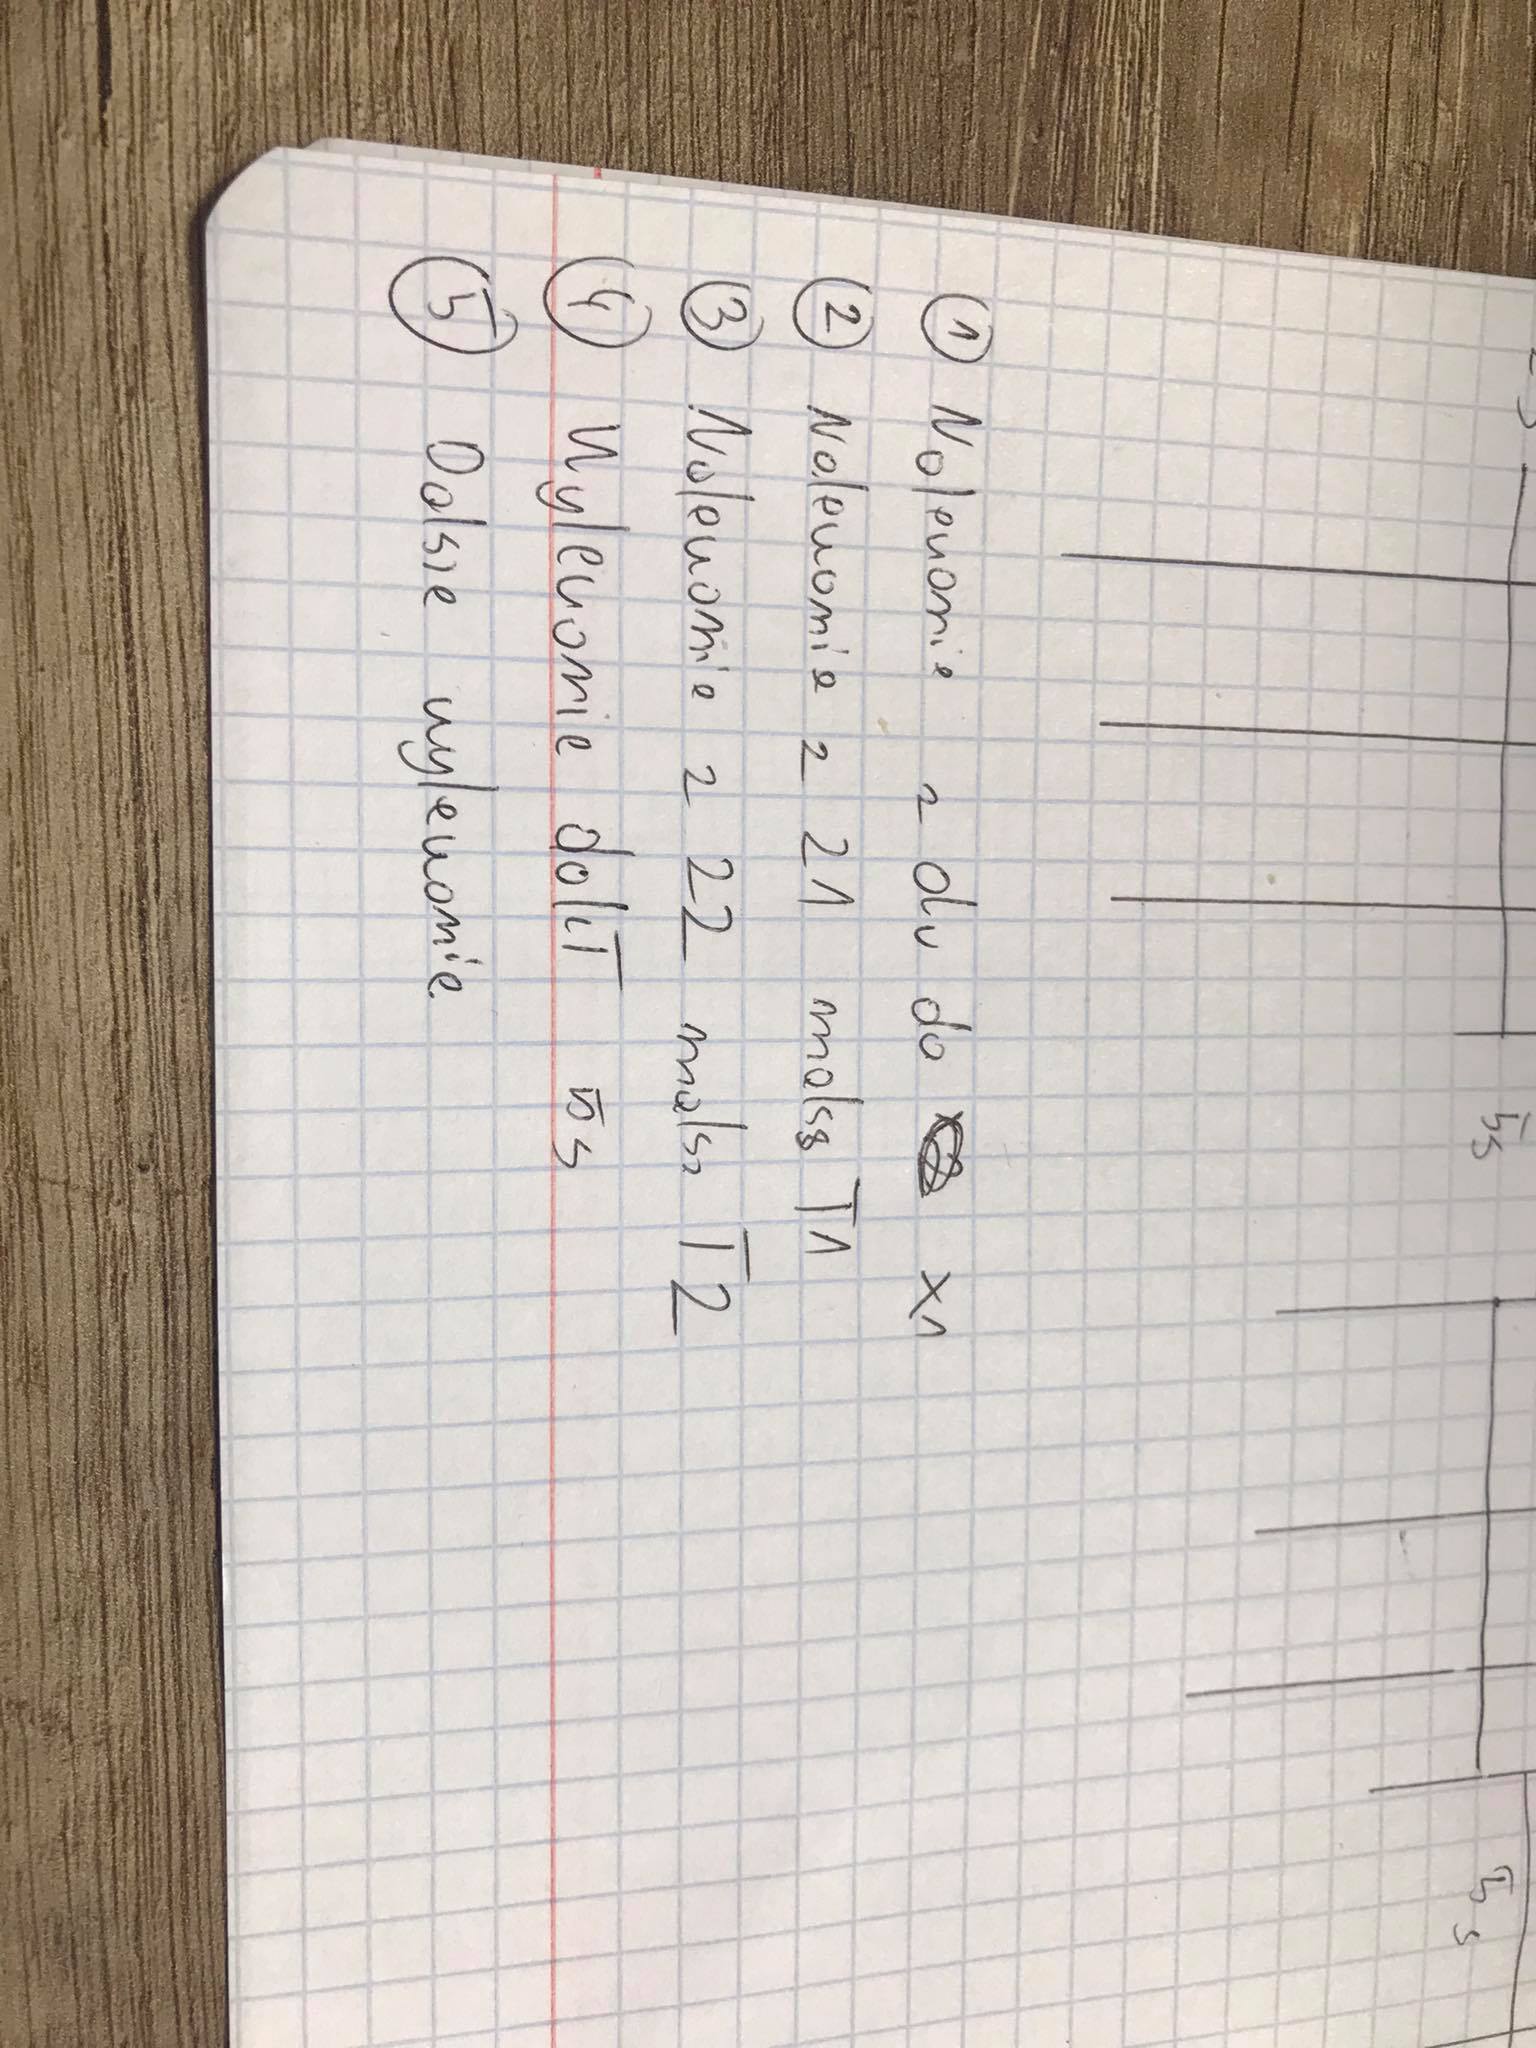 5s
5s
① Nalewanie z obu do x1
② Nalewanie z Z1 maks T1
③ Nalewanie z Z2 maks T2
④ Wylewanie dokł 5s
⑤ Dalsze wylewanie